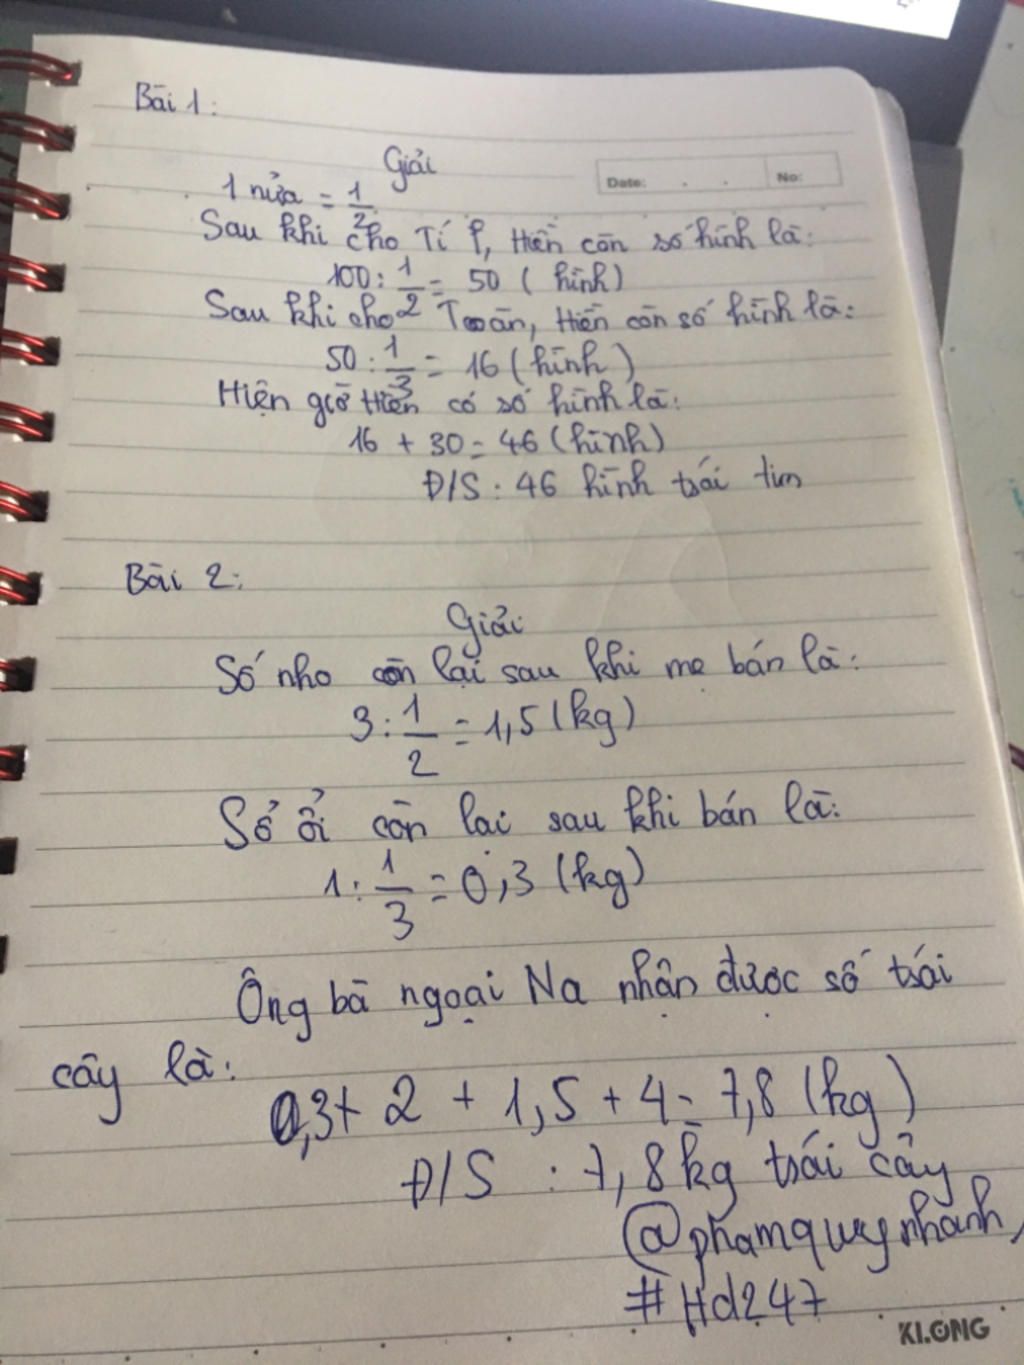 Bài 1:
Date: . . No:
Giải
1 nửa = 1/2
Sau khi cho Tí f, Hiền còn số hình là:
100 : 1/2 = 50 ( hình)
Sau khi cho Toàn, Hiền còn số hình là:
50 : 1/3 = 16 (hình)
Hiện giờ Hiền có số hình là:
16 + 30 = 46 (hình)
Đ/S : 46 hình trái tim
Bài 2:
Giải
Số nho còn lại sau khi mẹ bán là:
3 : 1/2 = 1,5 (kg)
Số ổi còn lại sau khi bán là:
1 : 1/3 = 0,3 (kg)
Ông bà ngoại Na nhận được số trái
cây là:
0,3 + 2 + 1,5 + 4 = 7,8 (kg)
Đ/S : 7,8 kg trái cây
@phamquynhanh,
#Hd247
KLONG